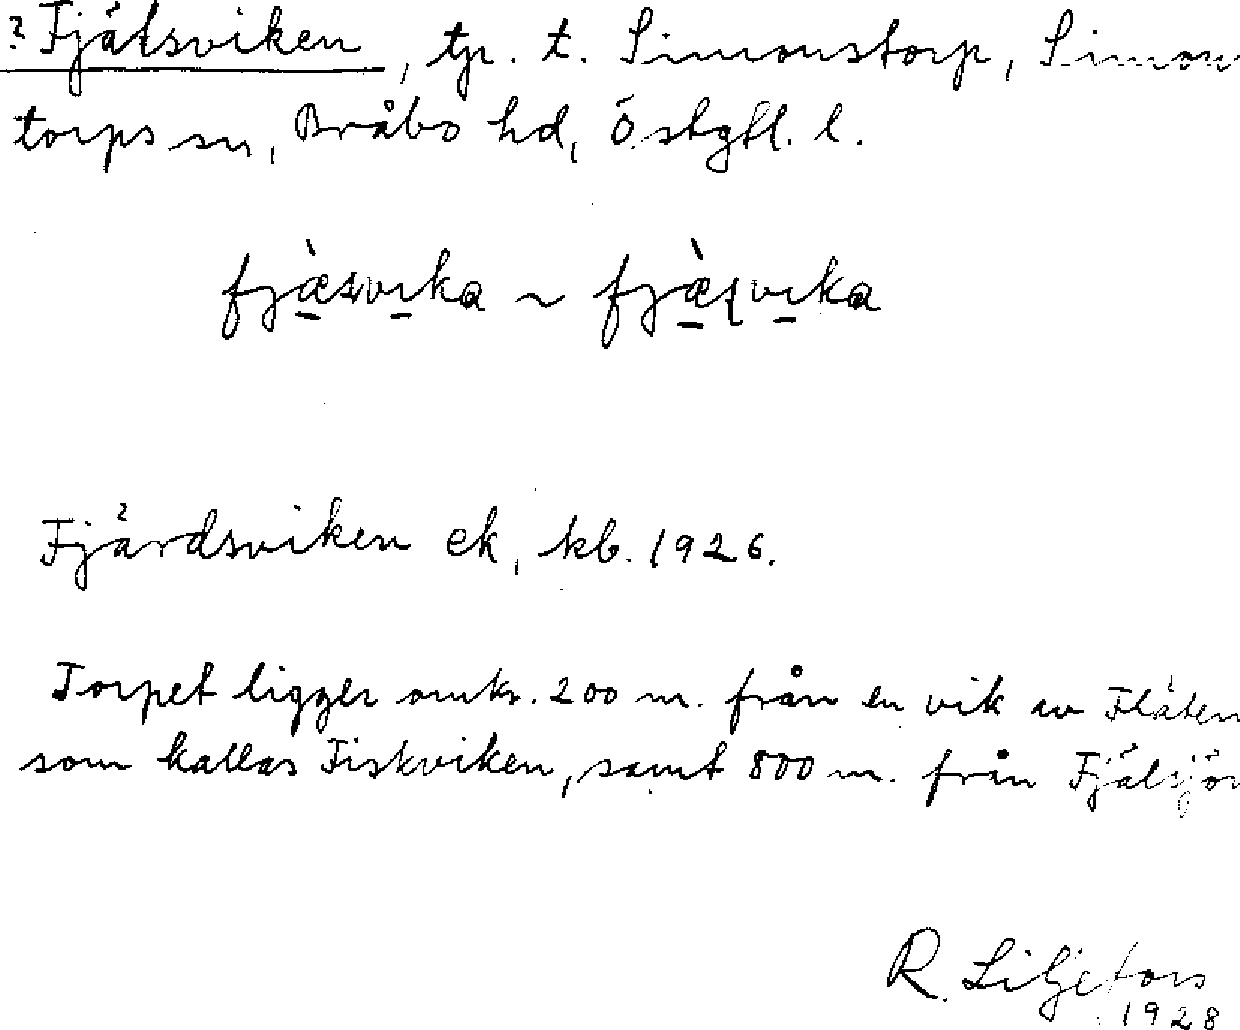 ? Fjälsviken, tp. t. Simonstorp, Simons
torps sn, Bråbo hd, Östgtl. l.
fjæ̀svika ~ fjæ̀ʂvika
Fjärdsviken ek, kb. 1926.
Torpet ligger omkr. 200 m. från en vik av Flåten
som kallas Fiskviken, samt 800 m. från Fjälsjön
R. Liljefors
1928